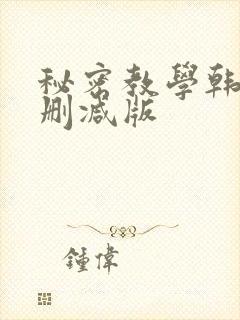 秘密教學韩
删减版
鍾偉